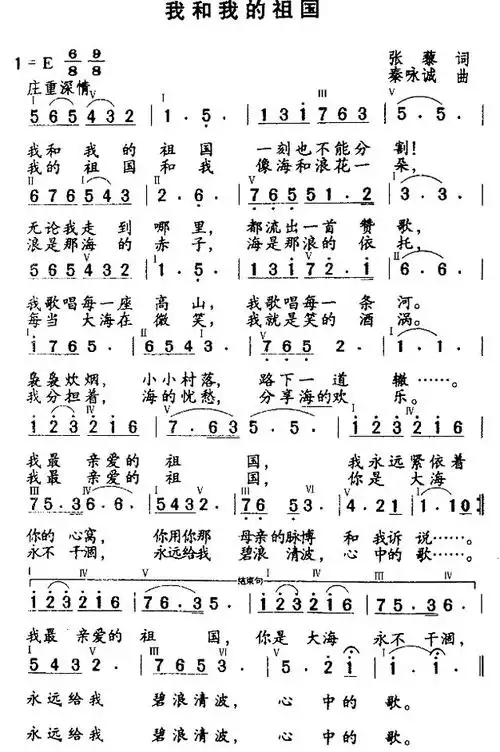 我和我的祖国
1=E 6/8 9/8
张藜 词
秦咏诚 曲
庄重深情
I V I III V
565432 | 1.5. | 131763 | 5.5. |
我和我的祖国 一刻也不能分割!
我的祖国和我 像海和浪花一朵,
II IV V I
676543 | 2.6. | 76551.2 | 3.3. |
无论我走到哪里, 都流出一首赞歌,
浪是那海的赤子, 海是那浪的依托,
565432 | 1.5. | 13172.1 | 6.6. |
我歌唱每一座高山, 我歌唱每一条河。
每当大海在微笑, 我就是笑的酒涡。
1765. | 6543. | 765 2. | 1.1. |
袅袅炊烟, 小小村落, 路下一道辙……。
我分担着, 海的忧愁, 分享海的欢乐。
123216 | 7.635.5. | 123216 |
我最亲爱的祖国, 我永远紧依着
我最亲爱的祖国, 你是大海
75.36.6. | 5432. | 7653. | 4.21 | 1.10 :|
你的心窝, 你用你那 母亲的脉搏 和我诉说……。
永不干涸, 永远给我 碧浪清波, 心中的歌……。
结束句
123216 | 76.35. | 123216 | 75.36. |
我最亲爱的祖国, 你是大海 永不干涸,
5432. | 7653. | 5.21 | 1.1. ‖
永远给我 碧浪清波, 心中的歌。
永远给我 碧浪清波, 心中的歌。